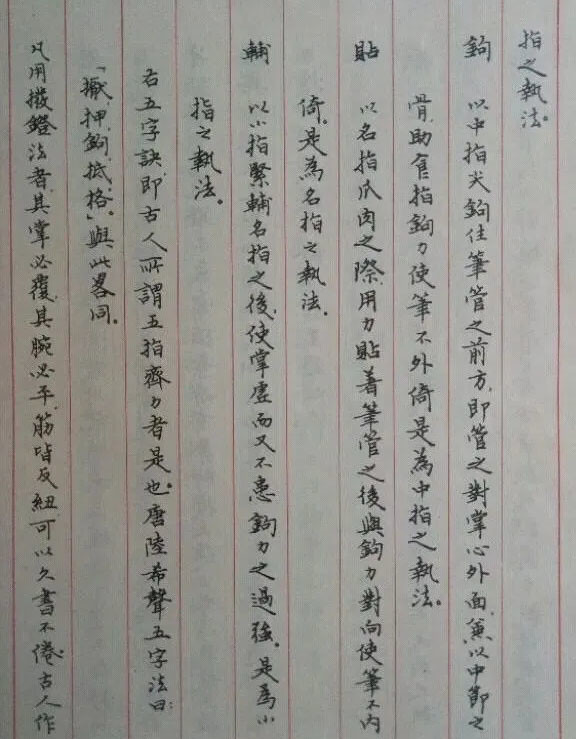 指之執法。
鉤　以中指尖鉤住筆管之前方，即管之對掌心外面，兼以中節之
骨，助食指鉤力使筆不外倚是為中指之執法。
貼　以名指爪肉之際，用力貼着筆管之後與鉤力對向使筆不內
倚。是為名指之執法。
輔　以小指緊輔名指之後，使掌虛而又不患鉤力之過強。是為小
指之執法。
右五字訣，即古人所謂五指齊力者是也。唐陸希聲五字法曰：
「擫、押、鉤、抵、格。」與此畧同。
凡用撥鐙法者，其掌必覆，其腕必平，筋皆反紐，可以久書不倦。古人作